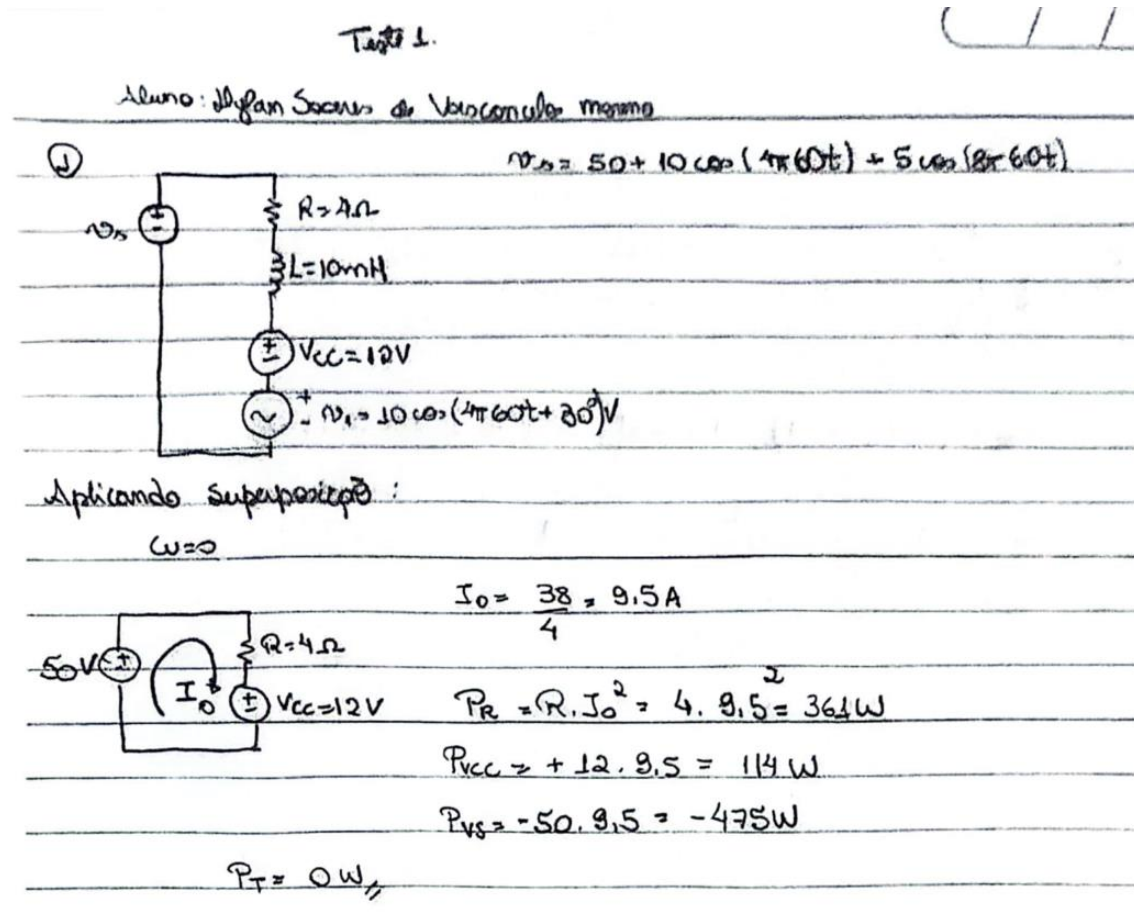 Teste 1.
Aluno: Dylan Soares de Vasconcelos
①
vs = 50 + 10 cos (4π60t) + 5 cos (8π60t)
R=4Ω
vs
L=10mH
Vcc=12V
v1=10 cos (4π60t+30°)V
Aplicando superposição:
ω=0
I0 = 38/4 = 9,5A
R=4Ω
50V
I0
Vcc=12V
PR = R.I0² = 4. 9,5² = 361W
Pvcc = +12. 9,5 = 114 W
Pvs = -50. 9,5 = -475W
PT = 0W //